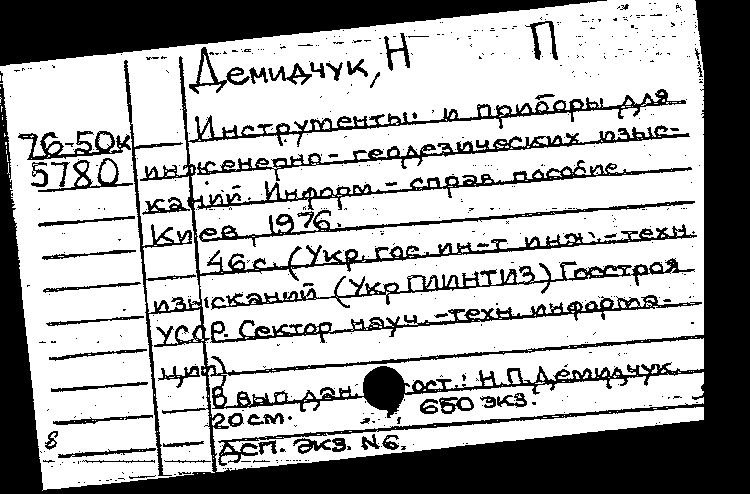 Демидчук, Н П
76-50к
5780
Инструменты и приборы для
инженерно-геодезических изыс-
каний. Информ.-справ. пособие.
Киев, 1976.
46 с. (Укр. гос. ин-т инж.-техн.
изысканий (УкрГИИНТИЗ) Госстроя
УССР. Сектор науч.-техн. информа-
ции).
В вып. дан. сост.: Н.П. Демидчук.
20 см. 650 экз.
8
ДСП. Экз. №6.